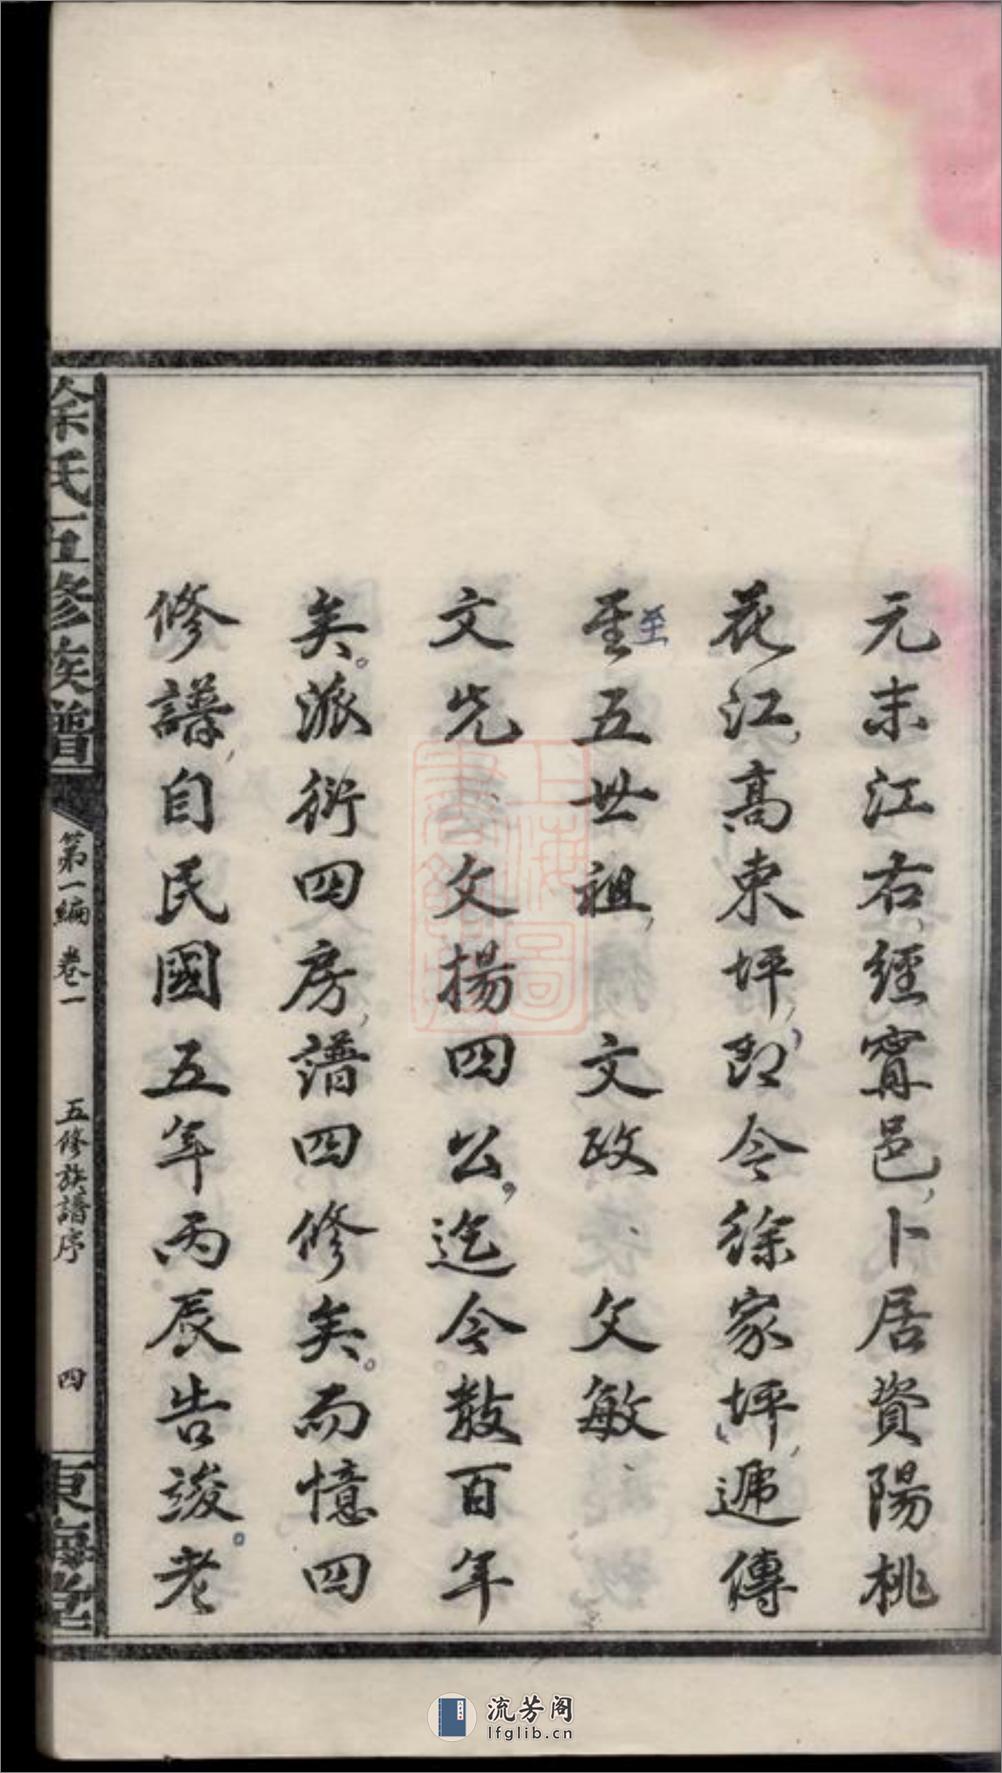 元末江右,經甯邑,卜居資陽桃
花江,高東坪,即今徐家坪,遞傳
至五世祖,文政、文敏、
至
文先、文揚四公。迄今數百年
矣。派衍四房,譜四修矣。而憶四
修譜,自民國五年丙辰告竣。老
徐氏五修族譜
第一編 卷一
五修族譜序
四
東海堂
上海圖書館藏
流芳阁
lfglib.cn